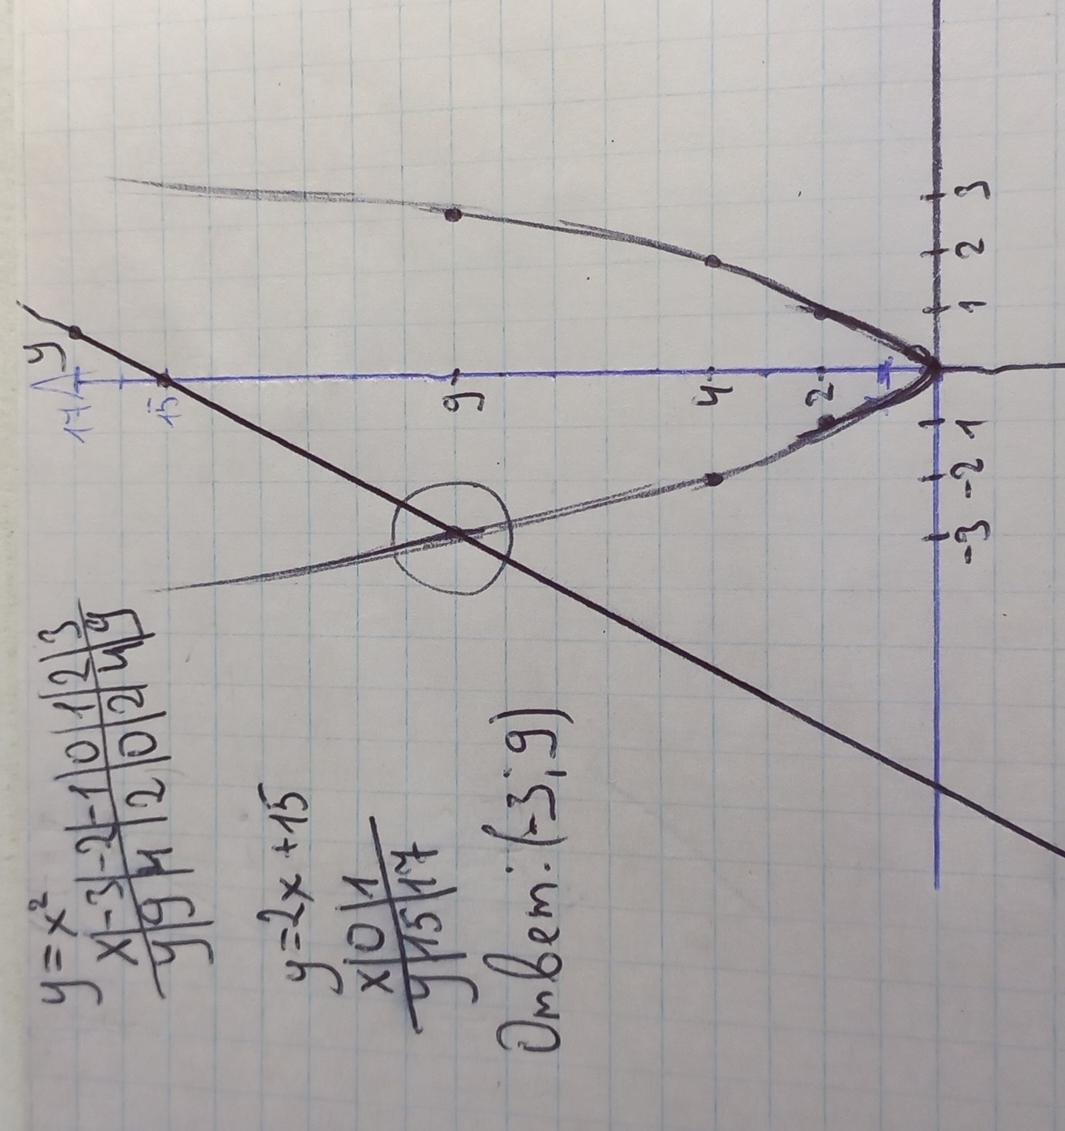 y=x²
x|-3|-2|-1|0|1|2|3
y|9|4|2|0|2|4|9
y=2x+15
x|0|1
y|15|17
Ответ: (-3; 9)
y
17
15
9
4
2
1
-3 -2 1 1 2 3